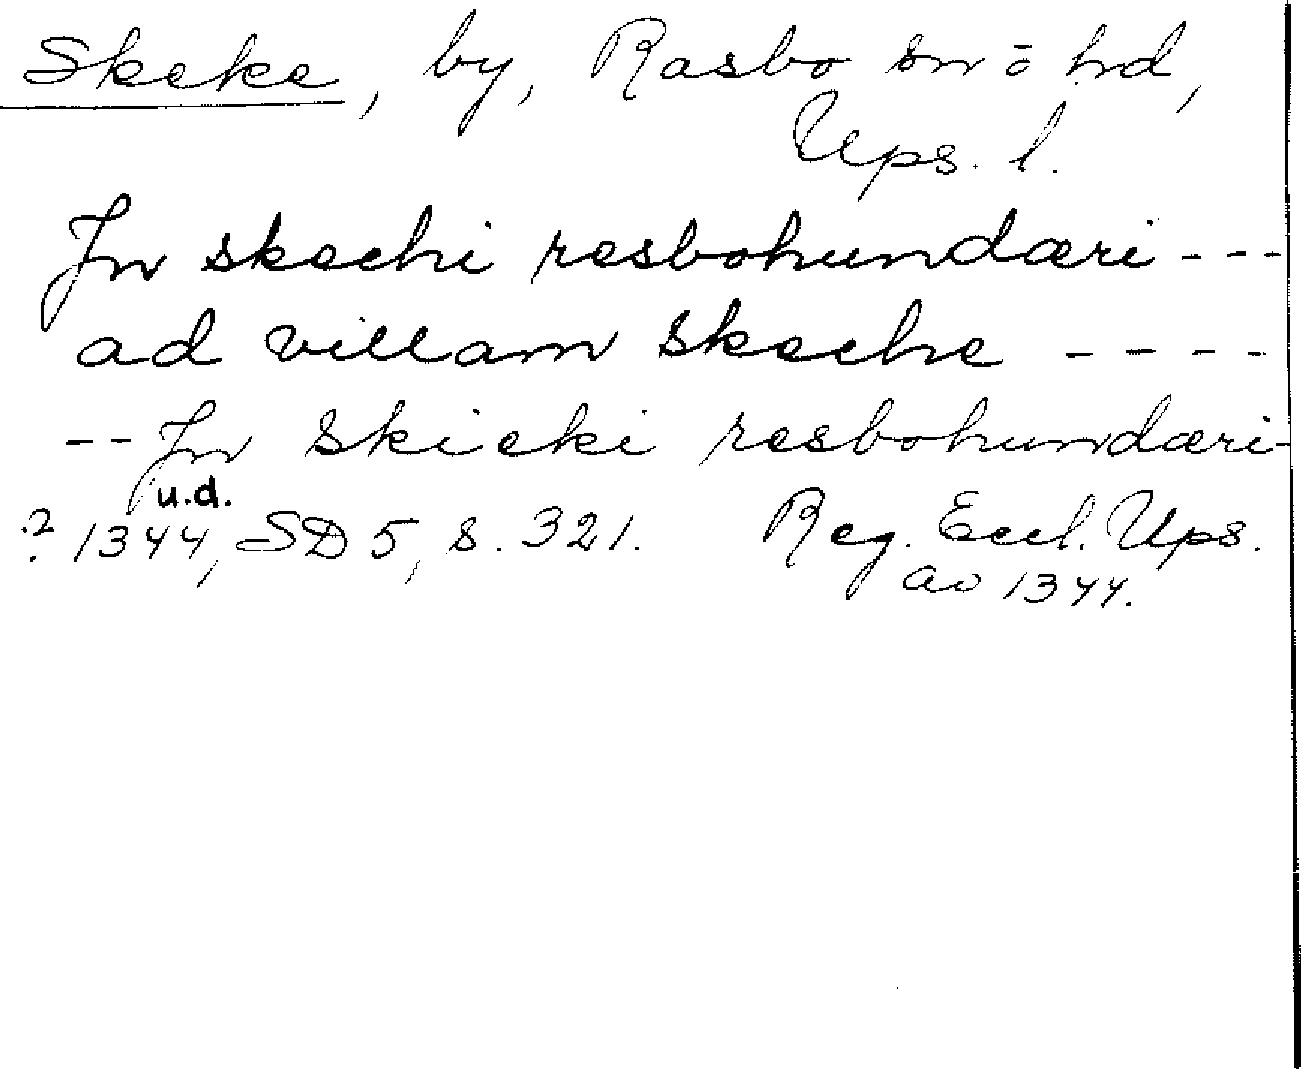 Skeke, by, Rasbo sn o hd,
Ups. l.
Jn skechi resbohundæri ---
ad villam skeche ----
-- Jn skieki resbohundæri-
u.d.
? 1344, SD 5, s. 321. Reg. Eccl. Ups.
av 1344.